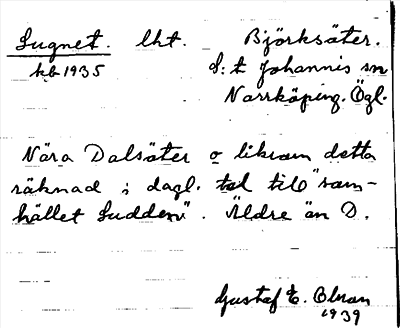 Lugnet. lht. Björksäter.
kb 1935 S:t Johannis sn
Norrköping. Ögl.
Nära Dalsäter o liksom detta
räknad i dagl. tal till "sam-
hället Sudden". Äldre än D.
Gustaf E.
1939